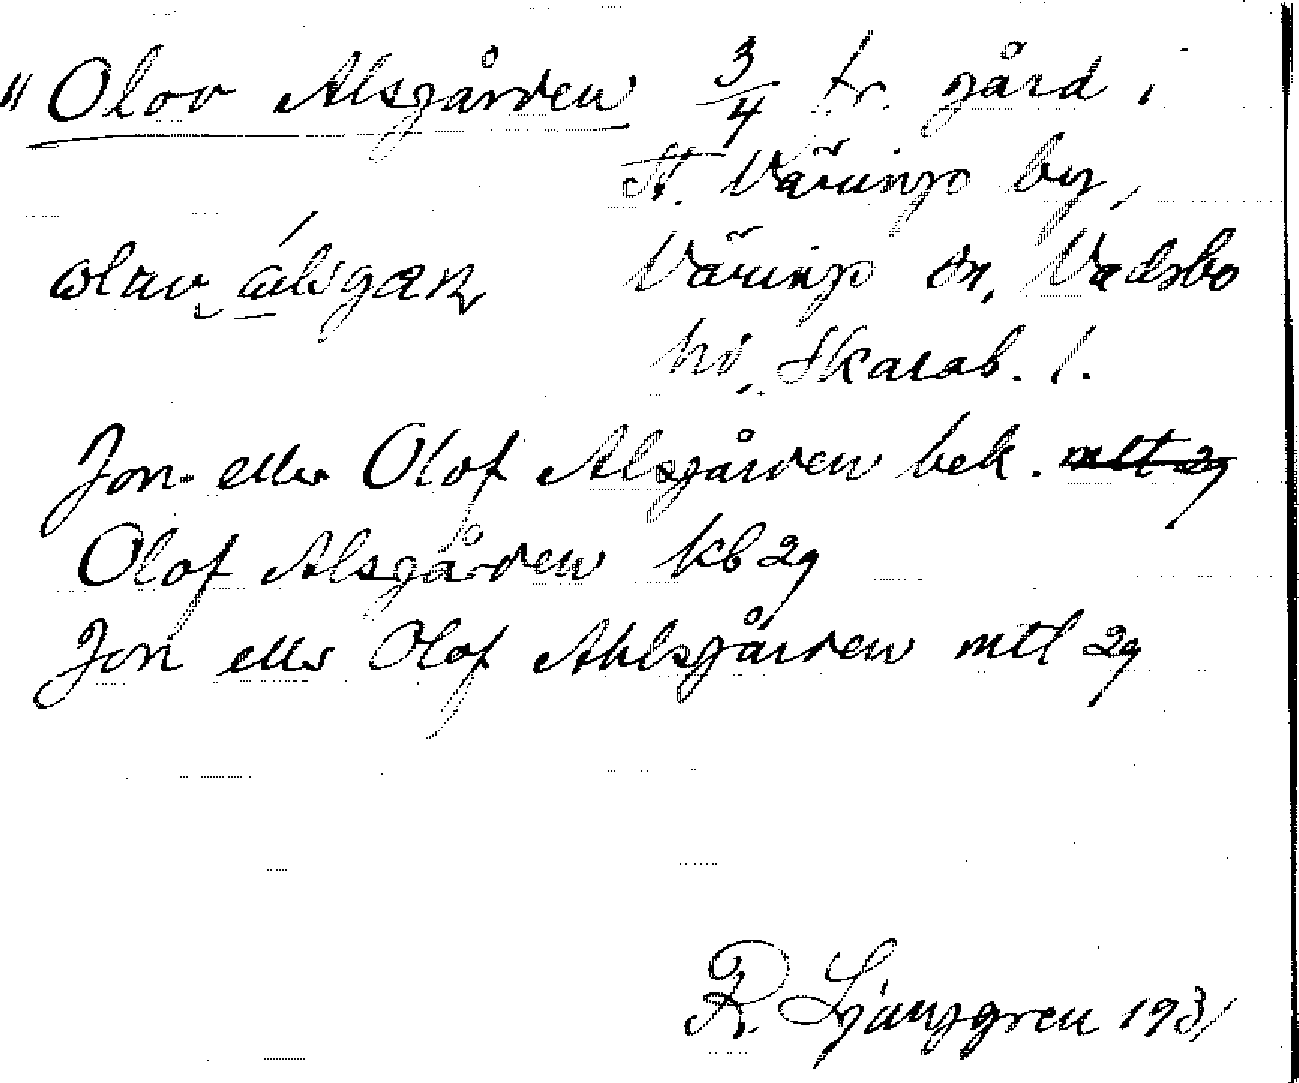 " Olov Alsgården 3/4 kr. gård i
N. Väring by,
Väring sn, Vadsbo
hd, Skarab. l.
Jon eller Olof Alsgården bek. mtl 29
Olof Alsgården kb 29
Jon eller Olof Ahlsgården mtl 29
R. Ljunggren 1931